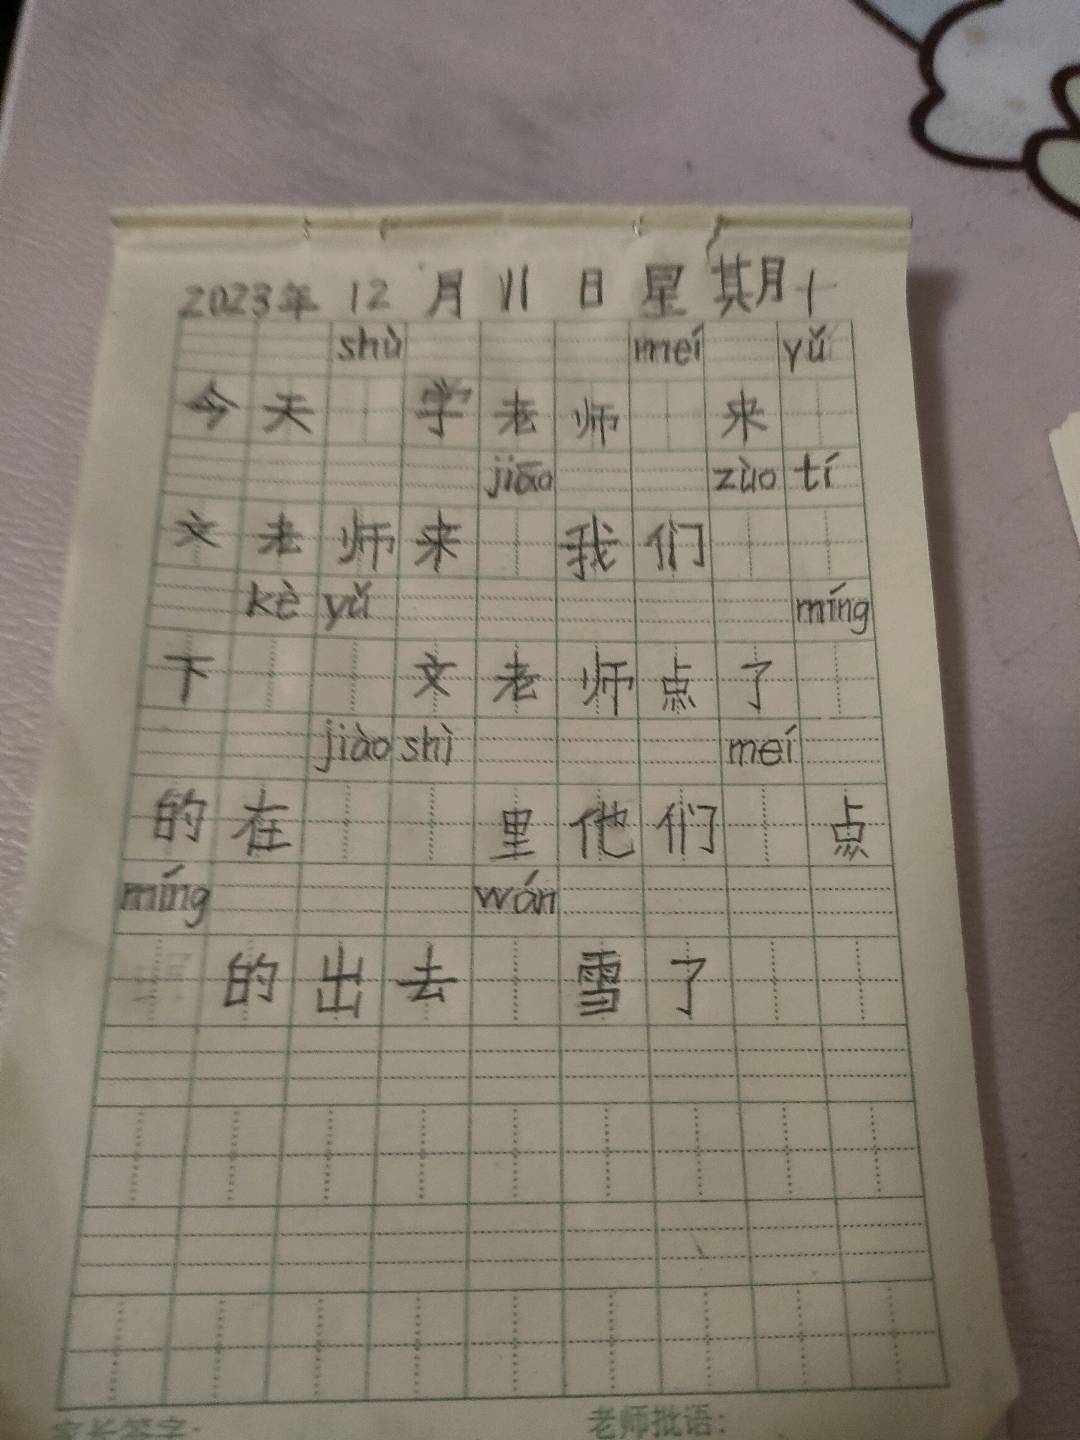 2023年 12 月 11 日 星 期 十
shù meí yǔ
今 天 学 老 师 来
jiāo zùo tí
文 老 师 来 我 们
kè yǔ míng
下 文 老 师 点 了
jiào shì meí
的 在 里 他 们 点
míng wán
的 出 去 雪 了
家长签字: 老师批语: